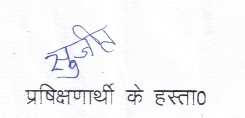 सुजीत
प्रषिक्षणार्थी के हस्ता0